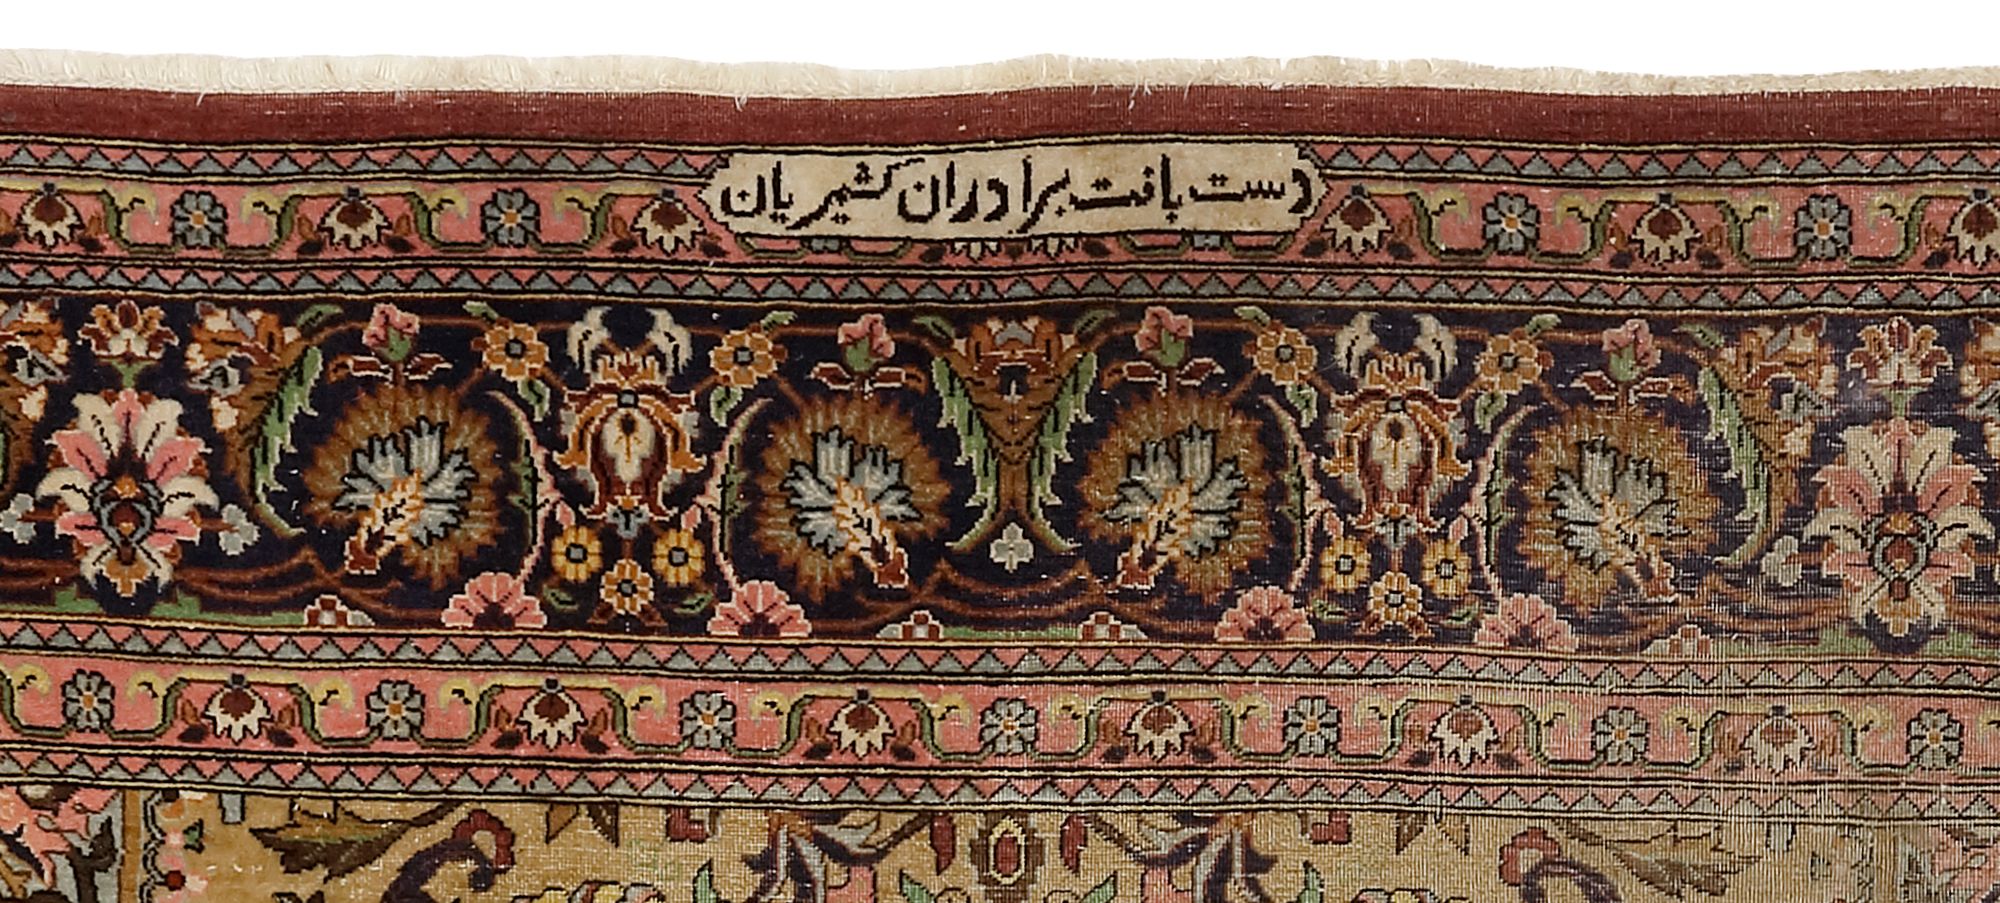 دست بافت برادران کشمیریان